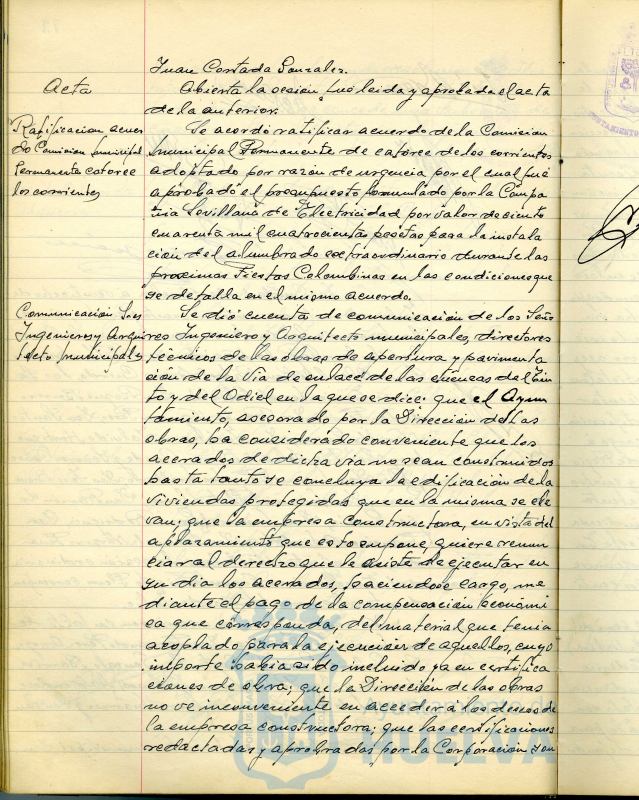 Juan Costada Gonzalez.
Acta
Abierta la sesión fué leida y aprobada el acta
de la anterior.
Ratificacion acuer
do Comision municipal
permanente catorce
los corrientes
Se acordó ratificar acuerdo de la Comision
municipal Permanente de catorce de los corrientes
adoptado por razón de urgencia por el cual fué
aprobado el presupuesto formulado por la Compa
ñia Sevillana de Electricidad por valor de ciento
cuarenta mil cuatrocientas pesetas para la instala
ción del alumbrado extraordinario durante las
proximas Fiestas Colombinas en las condiciones que
se detalla en el mismo acuerdo.
Comunicación Sres
Ingenieros y Arqui
tecto municipales
Se dió cuenta de comunicación de los Seño
res Ingeniero y Arquitecto municipales, directores
técnicos de las obras de apertura y pavimenta
ción de la Via de enlace de las cuencas del Tin
to y del Odiel en la que se dice: que el Ayun
tamiento, asesorado por la Dirección de las
obras, ha considerado conveniente que los
acerados de dicha via no sean construidos
hasta tanto se concluya la edificación de la
viviendas protegidas que en la misma se ele
van; que la empresa constructora, en vista del
aplazamiento que esto supone, quiere renun
ciar al derecho que le asiste de ejecutar en
su dia los acerados, haciendose cargo, me
diante el pago de la compensación económi
ca que corresponda, del material que tenia
acoplado para la ejecución de aquellos, cuyo
importe habia sido incluido ya en certifica
ciones de obra; que la Dirección de las obras
no ve inconveniente en acceder á los deseos de
la empresa constructora; que las certificaciones
redactadas y aprobadas por la Corporación son
HUELVA